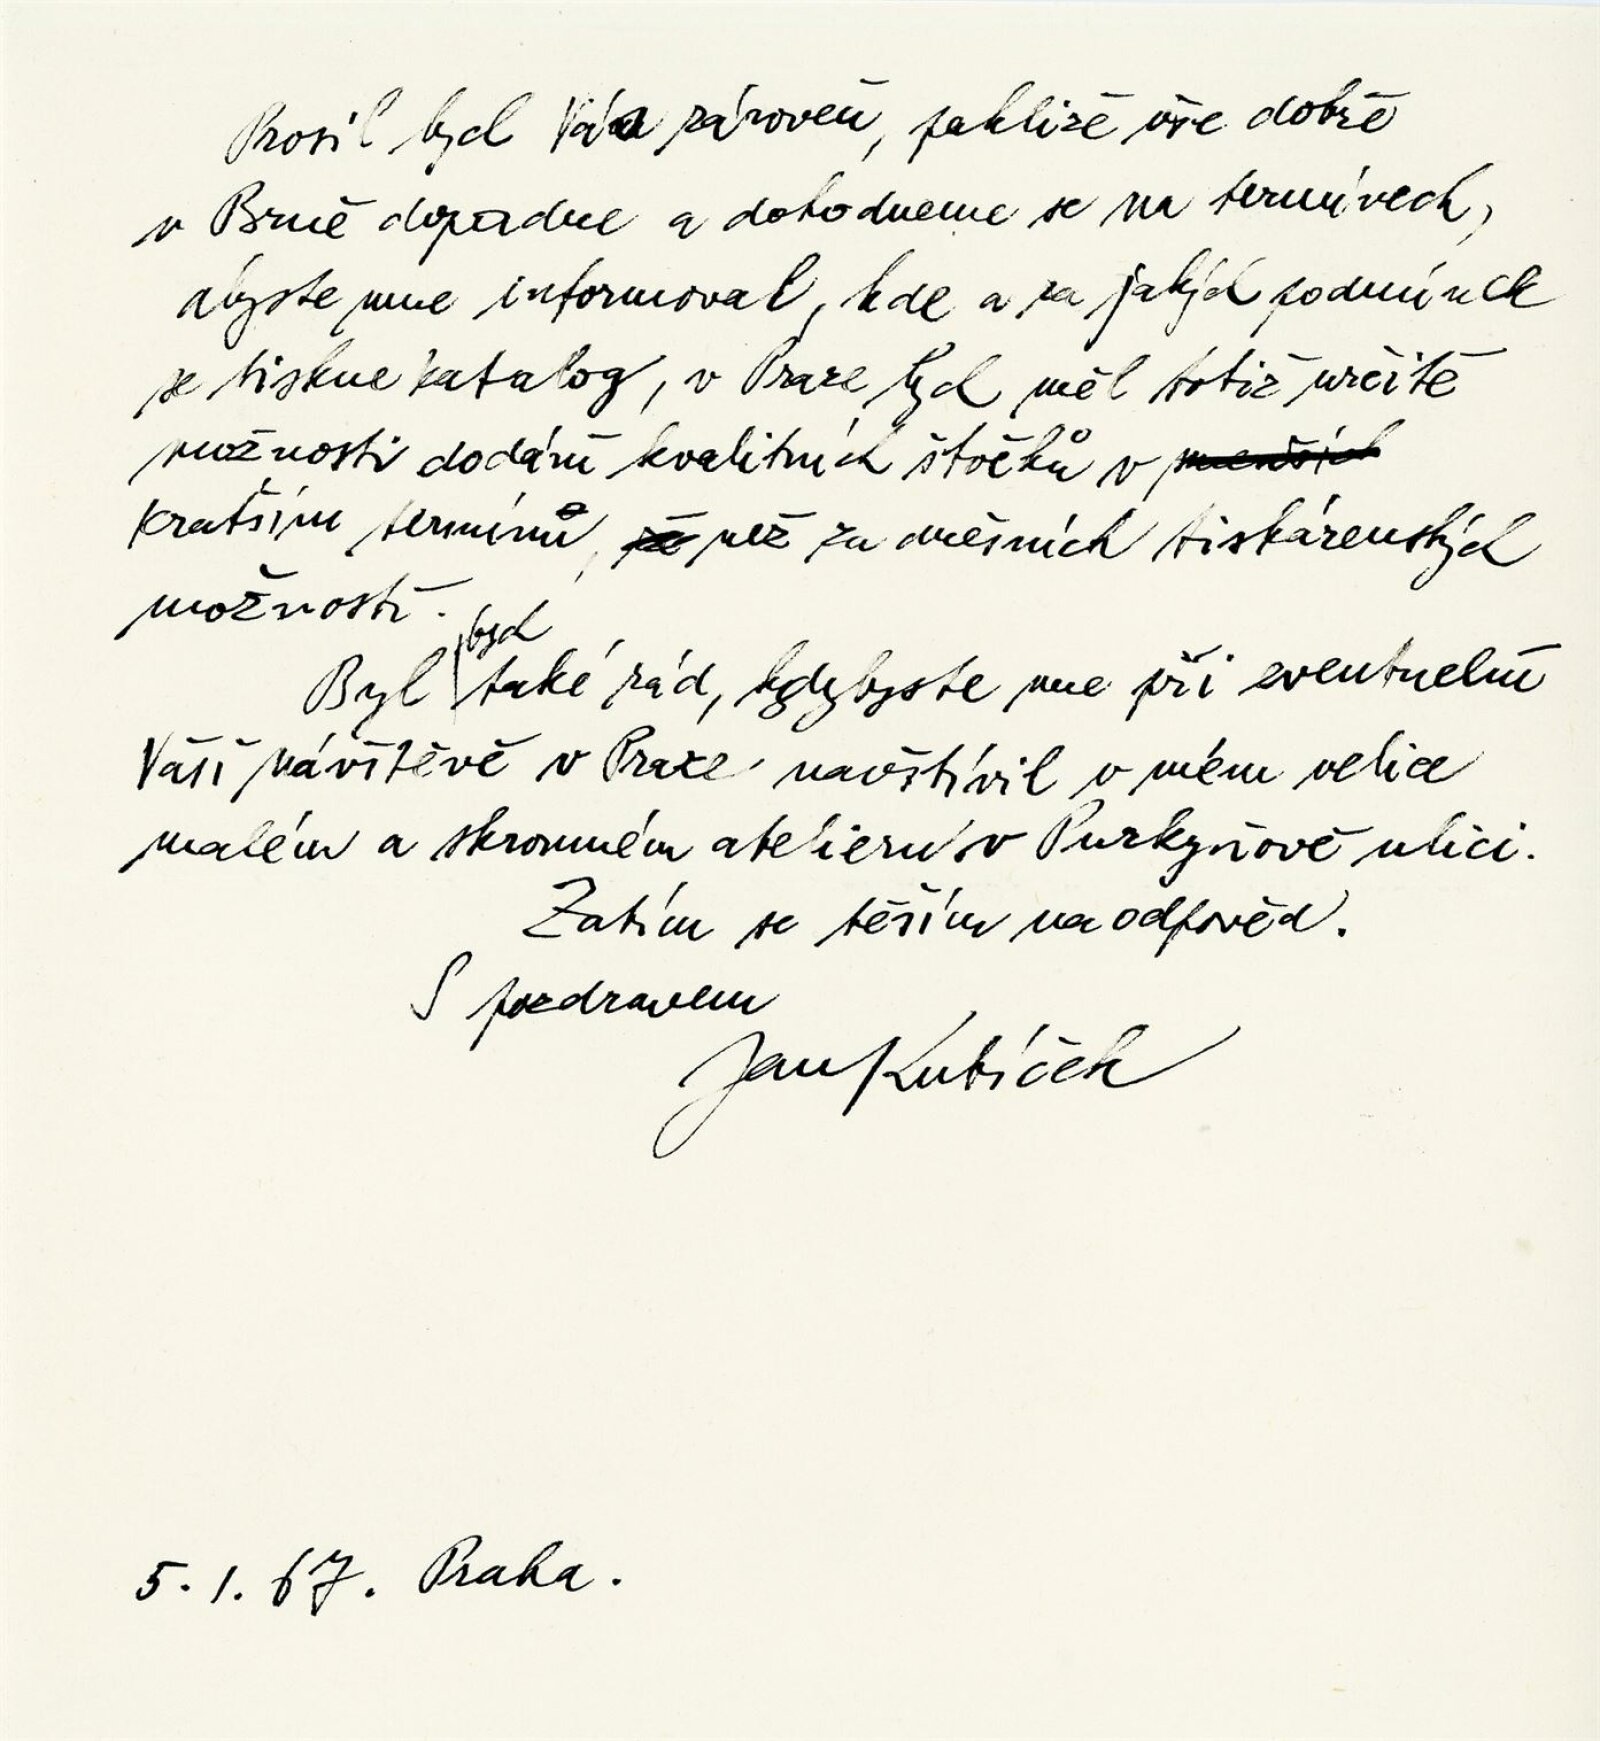 Prosil bych Vás zároveň, jakliže vše dobře
v Brně dopadne a dohodneme se na termínech,
abyste mne informoval, kde a za jakých podmínek
se tiskne katalog, v Praze bych měl totiž určité
možnosti dodání kvalitních štočků v menších
kratším termínu, že než za dnešních tiskárenských
možností.
bych
Byl také rád, kdybyste mne při eventuelní
Vaší návštěvě v Praze navštívil v mém velice
malém a skromném atelieru v Purkyňově ulici.
Zatím se těším na odpověd.
S pozdravem
Jan Kubíček
5. 1. 67. Praha.